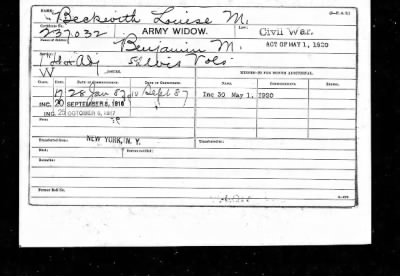 NAME: Beckwith Louise M.
Certificate No. 237.032 ARMY WIDOW. Law: Civil War.
Name of Soldier: Benjamin M. ACT OF MAY 1, 1920
Adj Wis Vols
W ISSUES.
CLASS. RATE. DATE OF COMMENCEMENT. DATE OF CERTIFICATE. RATE. COMMENCEMENT.
17 28 Jan 87 10 Sept 87 Inc 30 May 1, 1920
INC. 20 SEPTEMBER 8, 1916
INC. 25 OCTOBER 6, 1917
Transferred from: NEW YORK, N. Y. Transferred to:
Died: Bureau notified:
Remarks:
Former Roll No.